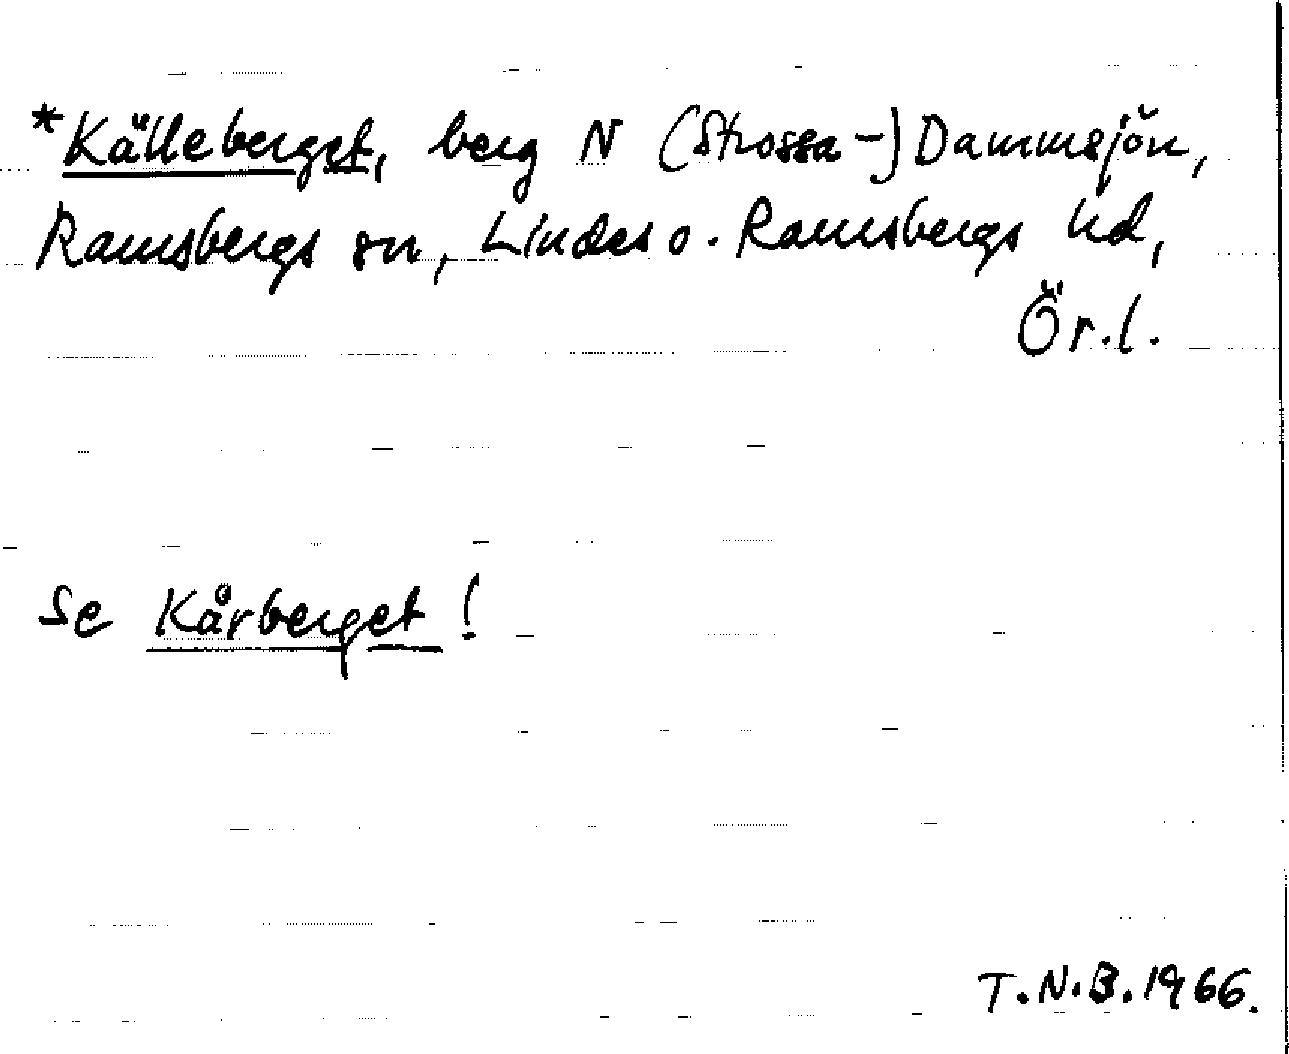 *Källeberget, berg N (Strossa-) Dammsjön,
Ramsbergs sn, Lindes o. Ramsbergs hd,
Ör.l.
Se Kårberget!
T.N.B. 1966.